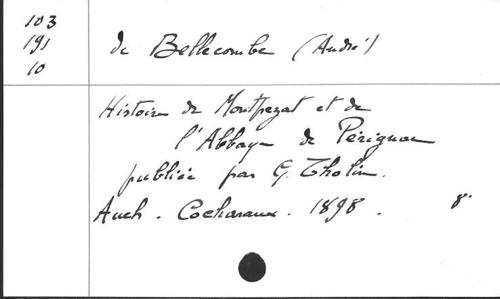 103
191
10
de Bellecombe (André)
Histoire de Montpezat et de
l'Abbaye de Pérignac
publiée par G. Tholin.
Auch. Cocharaux. 1898. 8°